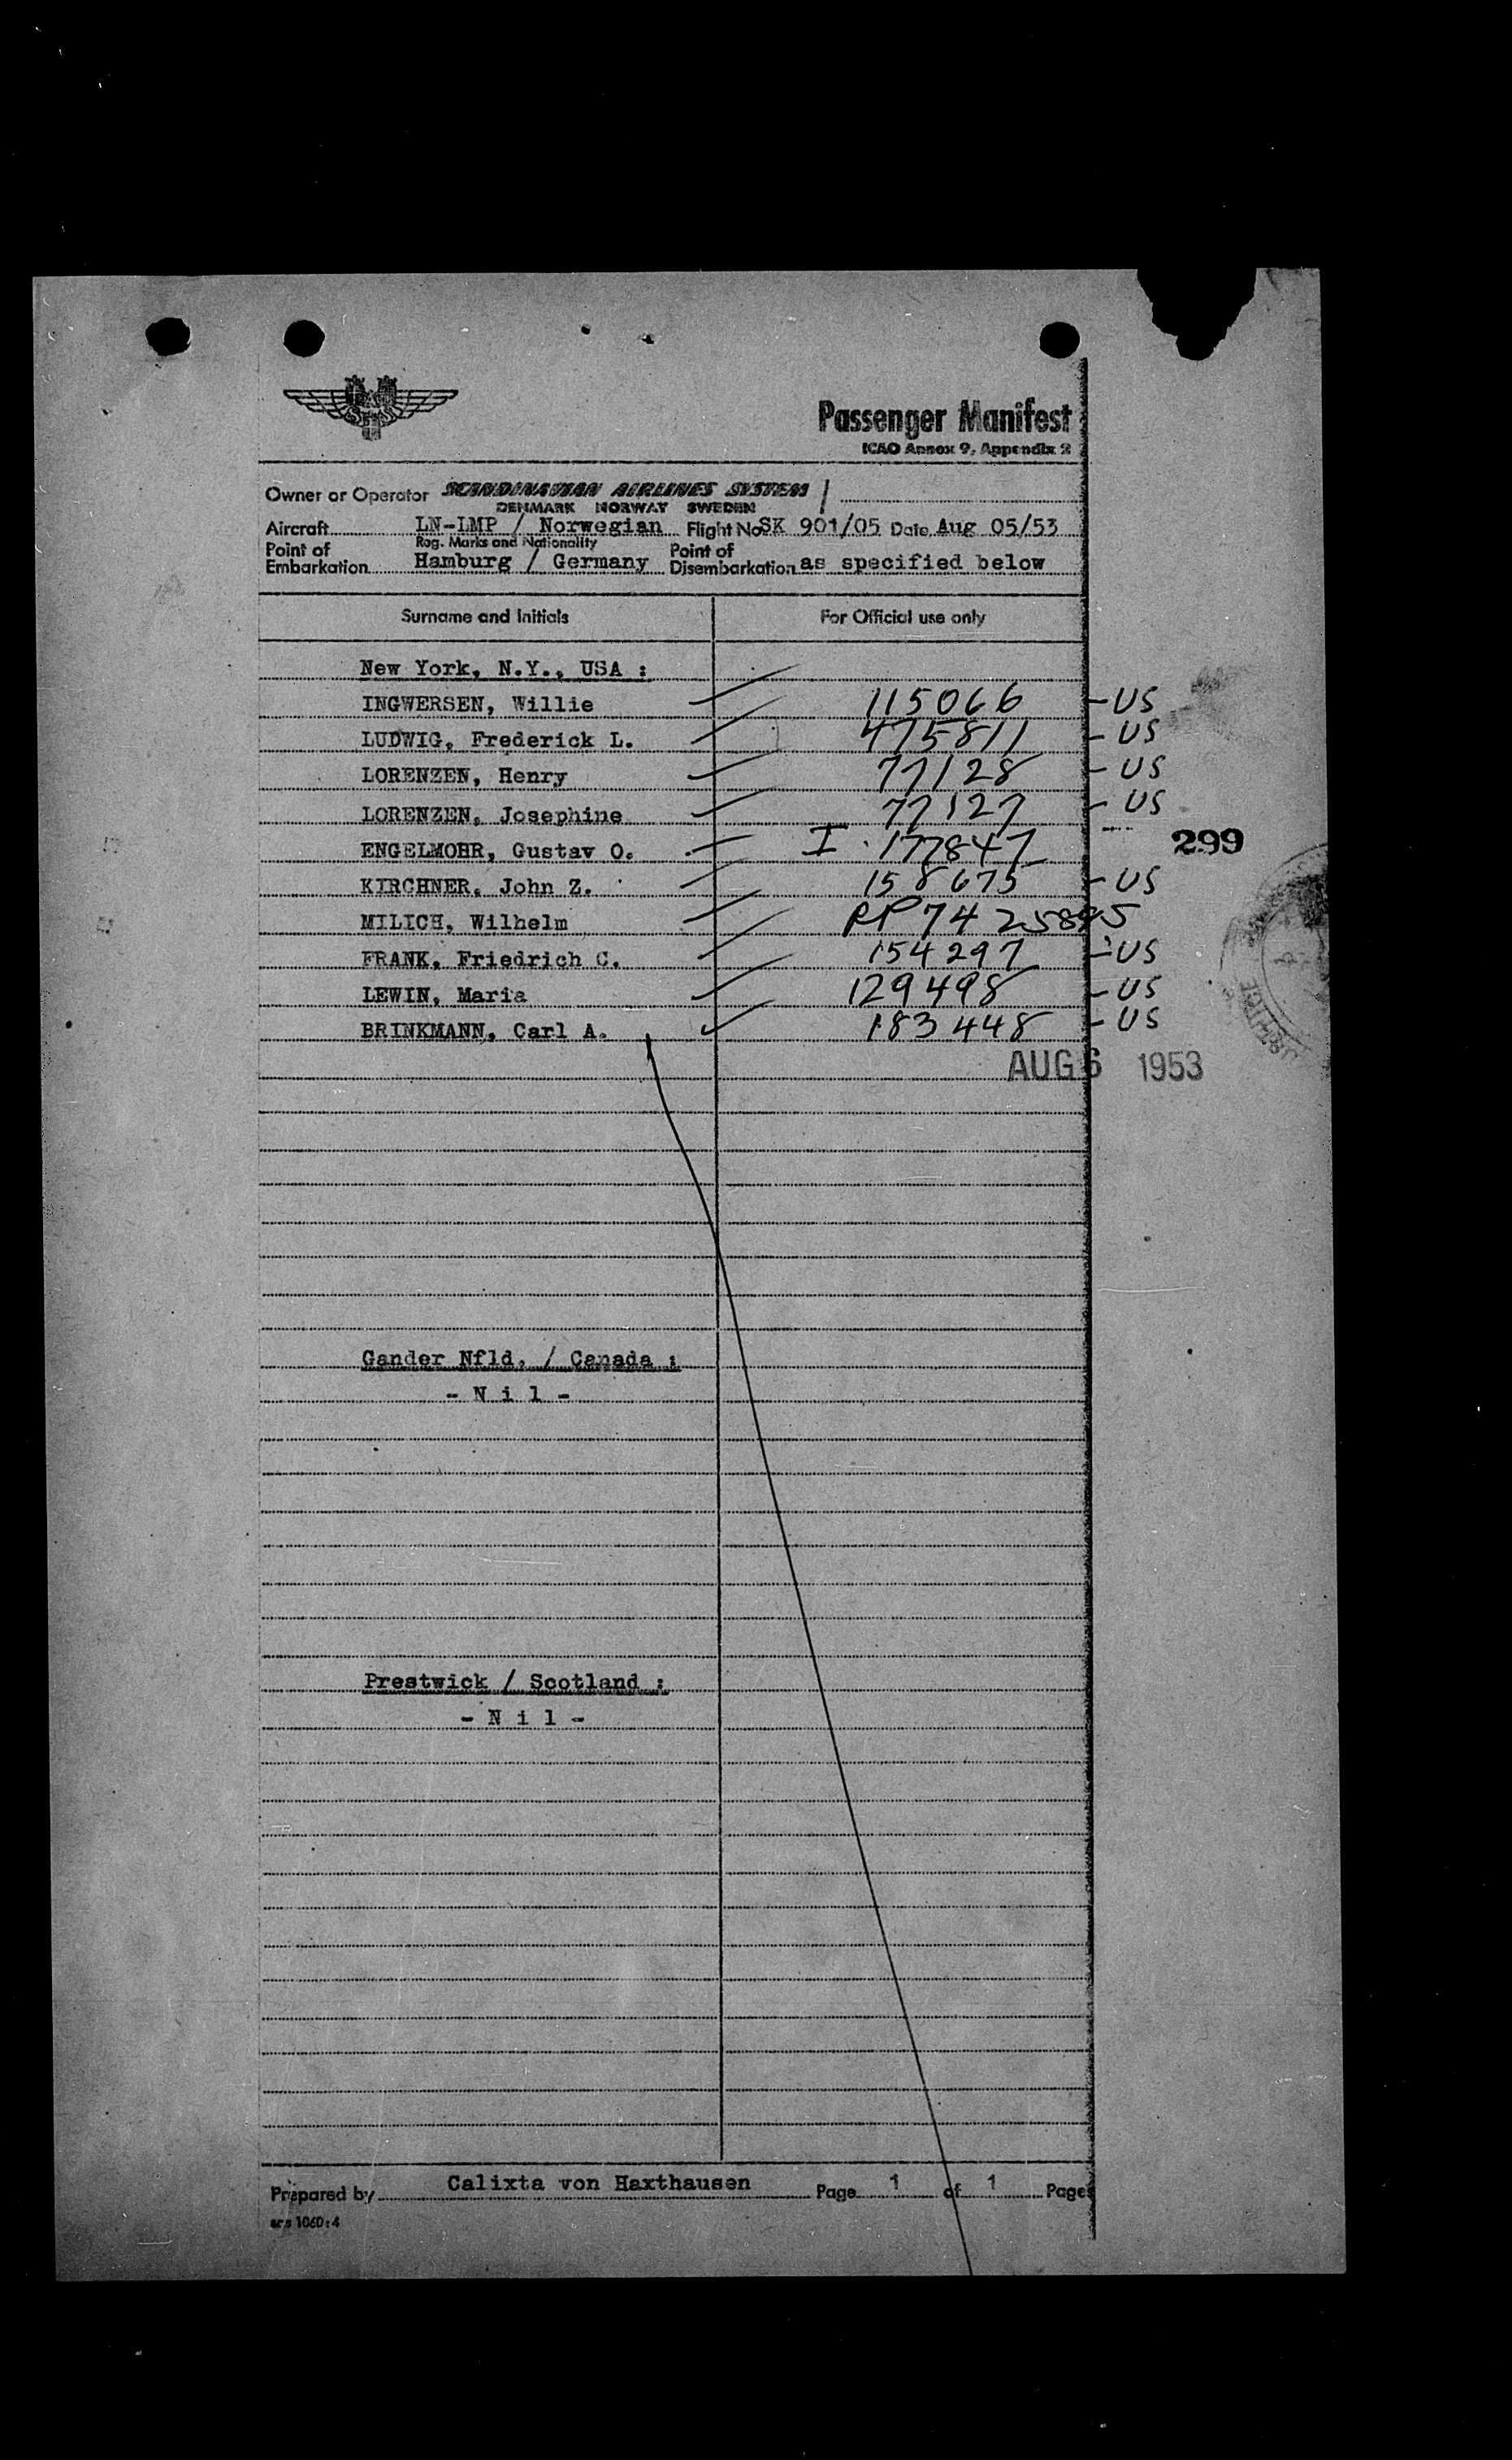 Passenger Manifest
ICAO Annex 9, Appendix 2
Owner or Operator SCANDINAVIAN AIRLINES SYSTEM /
DENMARK NORWAY SWEDEN
Aircraft LN-LMP / Norwegian Flight No SK 901/05 Date Aug 05/53
Reg. Marks and Nationality
Point of Embarkation Hamburg / Germany Point of Disembarkation as specified below
Surname and Initials For Official use only
New York, N.Y., USA :
INGWERSEN, Willie 115066 - US
LUDWIG, Frederick L. 475811 - US
LORENZEN, Henry 77128 - US
LORENZEN, Josephine 77127 - US
ENGELMOHR, Gustav O. I 177847
299
KIRCHNER, John Z. 158675 - US
MILICH, Wilhelm RP 74 25895
FRANK, Friedrich C. 154297 - US
LEWIN, Maria 129498 - US
BRINKMANN, Carl A. 183448 - US
AUG 6 1953
Gander Nfld. / Canada :
- N i l -
Prestwick / Scotland :
- N i l -
Prepared by Calixta von Haxthausen Page 1 of 1 Pages
1060:4